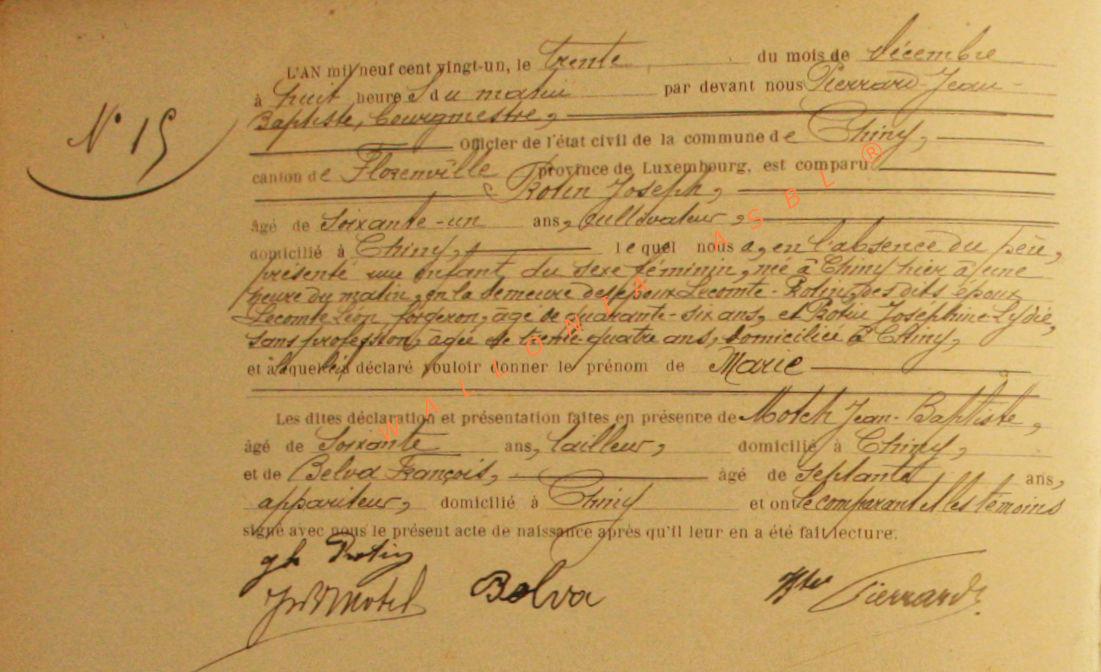 N° 15
L'AN mil neuf cent vingt-un, le trente du mois de décembre
à huit heures du matin par devant nous Pierrard Jean-
Baptiste, bourgmestre,
Officier de l'état civil de la commune de Chiny,
canton de Florenville province de Luxembourg, est comparu
Rotin Joseph,
âgé de soixante-un ans, cultivateur,
domicilié à Chiny, lequel nous a, en l'absence du père,
présenté un enfant du sexe féminin, née à Chiny hier à une
heure du matin, en la demeure des époux Lecomte-Rotin, des dits époux
Lecomte Léon, forgeron, âgé de quarante-six ans, et Rotin Joséphine-Lydie,
sans profession, âgée de trente quatre ans, domiciliée à Chiny,
et à laquelle il a déclaré vouloir donner le prénom de Marie
Les dites déclaration et présentation faites en présence de Motch Jean-Baptiste,
âgé de soixante ans, tailleur, domicilié à Chiny,
et de Belva François, âgé de septante ans,
appariteur, domicilié à Chiny et ont le comparant et les témoins
signé avec nous le présent acte de naissance après qu'il leur en a été fait lecture.
Rotin
Belva
Pierrard
WALLONIA ASBL ®